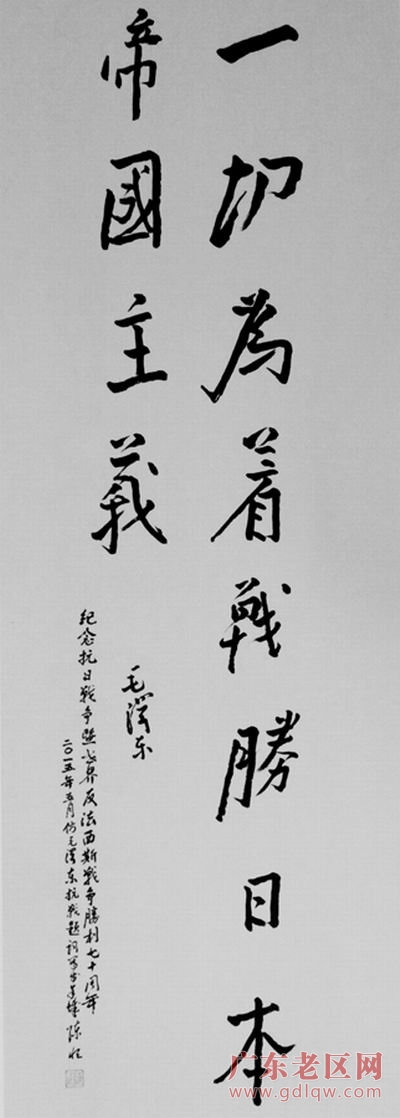 一切為着戰勝日本
帝國主義
毛澤东
纪念抗日战争暨世界反法西斯战争勝利七十周年
二〇一五年五月仿毛澤东抗战題词
广东老区网
www.gdlqw.com